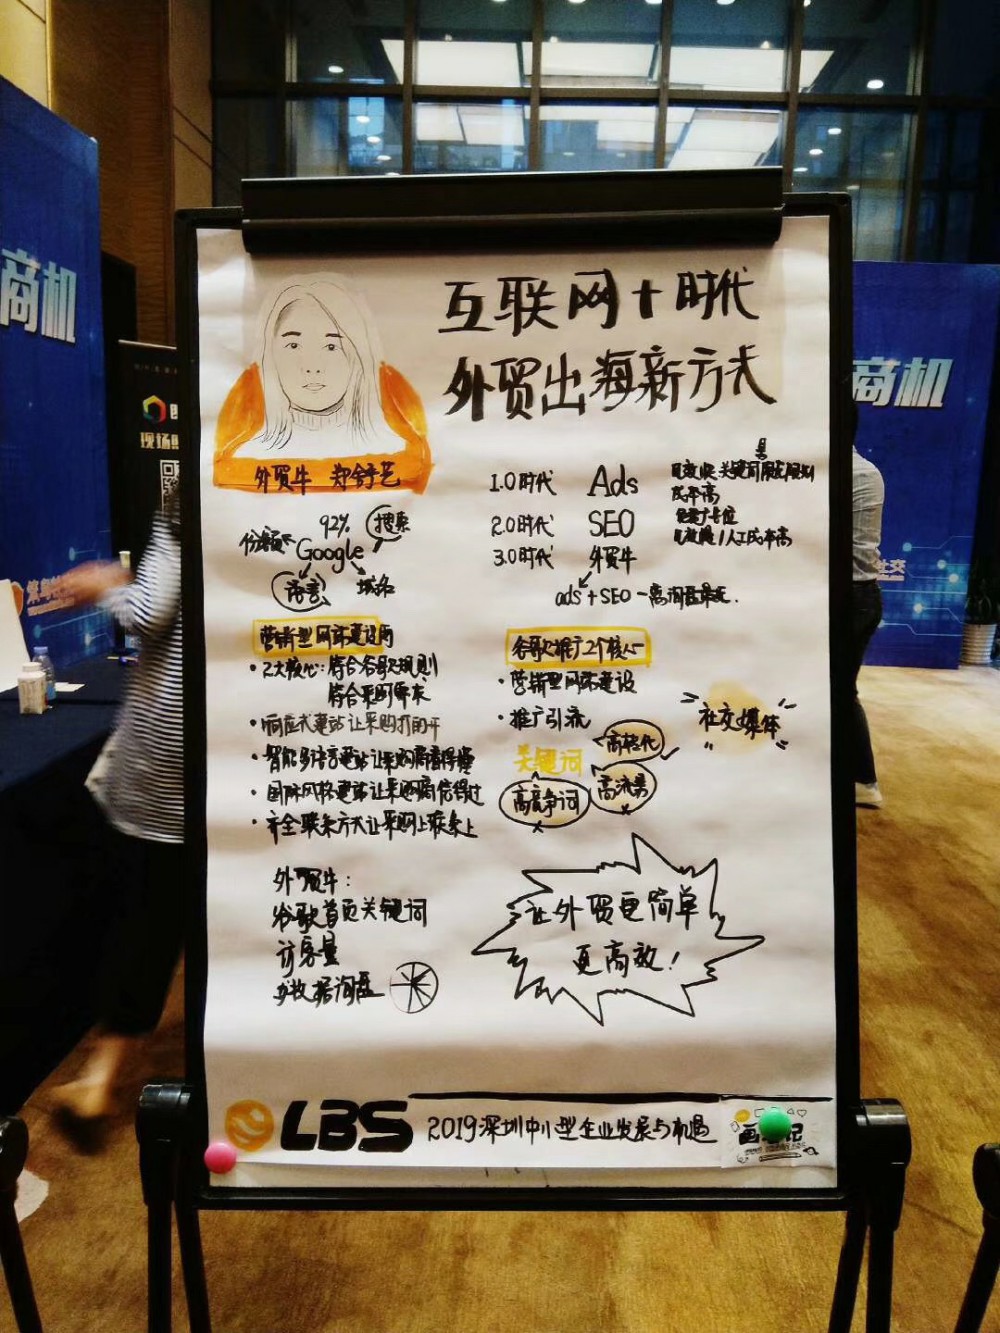 互联网+时代
外贸出海新方式
外贸牛 郑舒艺
1.0时代 Ads
2.0时代 SEO
3.0时代 外贸牛
ads+SEO
92% 搜索
份额 Google
语言 域名
营销型网站建设
·2大核心:符合谷歌规则
符合采购需求
·响应式建站让采购打的开
·智能多语言建站让采购商看得懂
·国际风格建站让采购商信得过
·齐全联系方式让采购上联系上
谷歌推广2个核心
·营销型网站建设
·推广引流
关键词
高转化
高竞争词
高流量
社交媒体
外贸牛:
谷歌首页关键词
访客量
大数据询盘
让外贸更简单
更高效!
LBS 2019深圳中小型企业发展与机遇
商机
商机
现场
社交